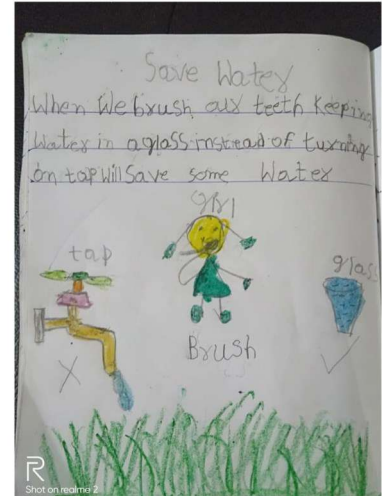 Save Water
When We brush our teeth Keeping
Water in a glass instead of turning
on tap Will Save some Water
girl
tap
glass
Brush
R
Shot on realme 2